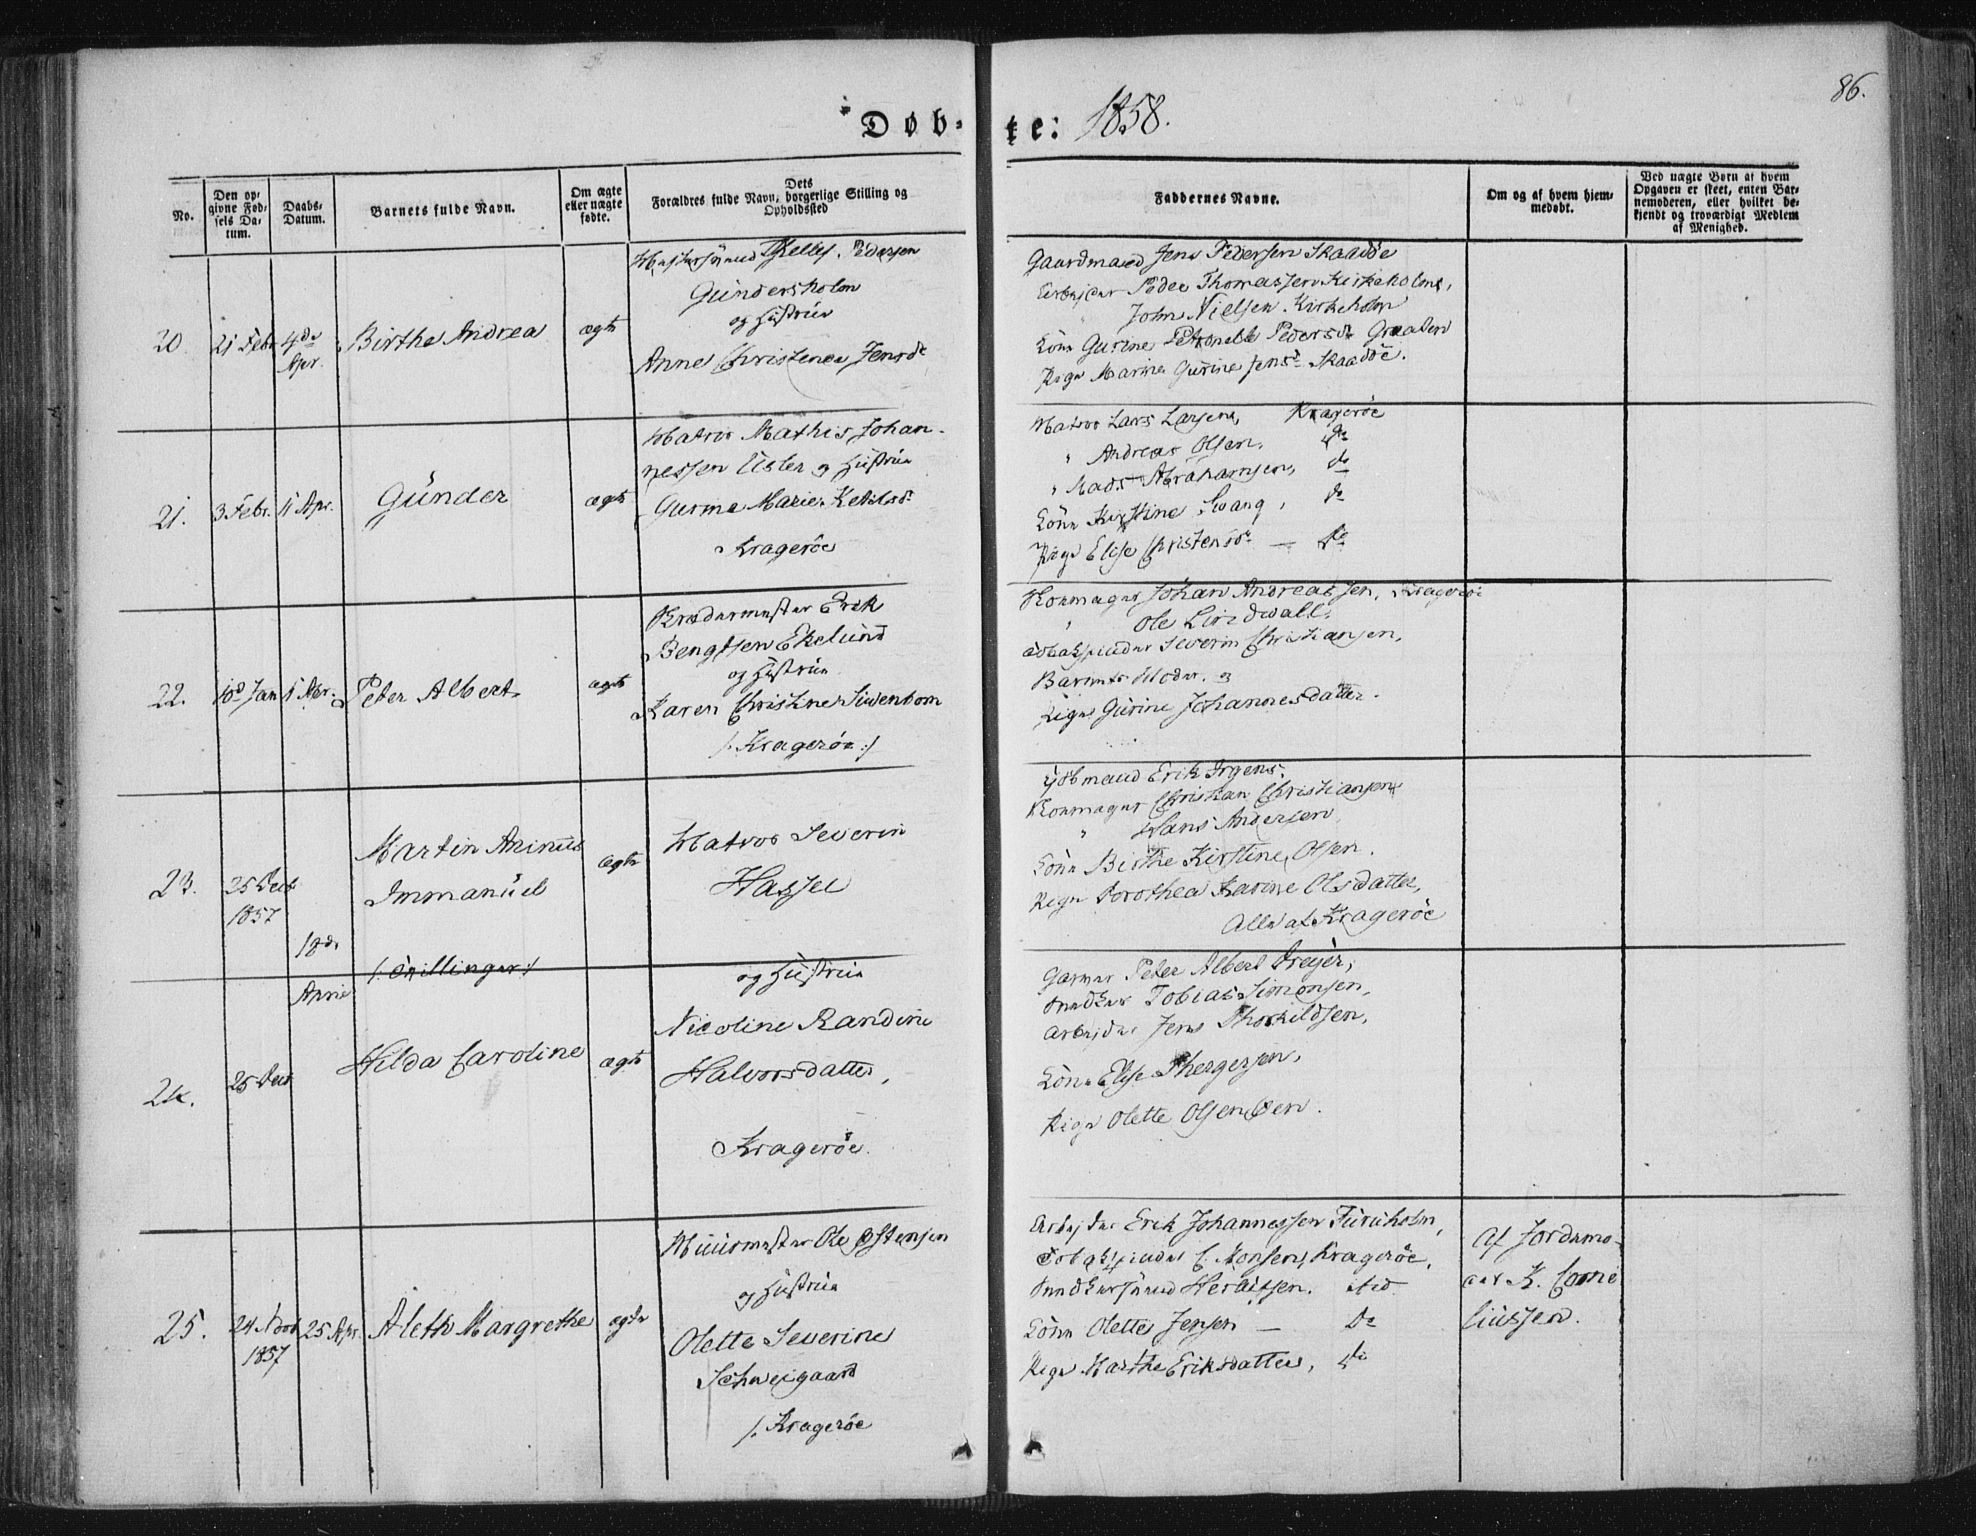 86.
Døb-te: 1858.
No.
Den opgivne Fødsels Datum.
Daabs-Datum.
Barnets fulde Navn.
Om ægte eller uægte fødte.
Dets Forældres fulde Navn, borgerlige Stilling og Opholdssted
Faddernes Navne.
Om og af hvem hjemmedøbt.
Ved uægte Børn at hvem Opgaven er skeet, enten Barnemoderen, eller hvilket bekjendt og troværdigt Medlem af Menighed.
20. 21 Febr. 4de Apr. Birthe Andrea ægte
Pedersen
Gundersholm
og Hustrue
Anne Christence Jensdr
Gaardmand Jens Pedersen Skaadöe
Arbejder Peder Thomassen Kirkeholm,
John Nielsen Kirkeholm
Kone Gurine Petronelle Pedersdr Graaten
Pige Marine Gurine Jensdr Skaadöe.
21. 3 Febr. 11 Apr. Gunder ægte
Matros Mathis Johan-
nessen Usler og Hustrue
Gurine Marie Ketilsdr
Kragerøe
Matros Lars Larsen, Kragerøe
" Andreas Olsen, do
" Mads Abrahamsen, do
Kone Kirstine Svang, do
Pige Elise Christensdr — do
22. 18de Jan 5 Apr. Peter Albert ægte
Erik
Bengtsen Ekelund
og Hustrue
Karen Christine Siwenbom
/: Kragerøe :/
Johan Andreassen, Kragerøe
" Ole Lindwall,
Severin Christiansen,
Barnets Moder, og
Pige Gurine Johannesdatter.
23. 25 Decb 1857 18de April Martin Arinius
Immanuel
/: Tvillinger :/
ægte
Matros Severin
Hassel
og Hustrue
Nicoline Randine
Halvorsdatter,
Kragerøe.
Erik Irgens,
Christian Christiansen
" Hans Andersen,
Kone Birthe Kirstine Olsen.
Pige Dorothea Karine Olsdatter,
Alle af Kragerøe
24. 25 Decb Hilda Caroline ægte
Garver Peter Albert Dreyer,
Snedker Tobias Simonsen,
Arbejder Jens Thorkildsen,
Kone Elise Thergersen,
Pige Olette Olsen Øen.
25. 24 Novb 1857 25 Apr. Aleth Margrethe ægte
Muurmester Ole Østensen
og Hustrue
Olette Severine
Schweigaard
/: Kragerøe
Arbejder Erik Johannessen Furuholm,
C. Monsen, Kragerøe,
Snedkersvend ibid.
Kone Olette Jensen — do
Pige Marthe Eriksdatter, do
Af Jordemo-
der K. Corne
liussen.